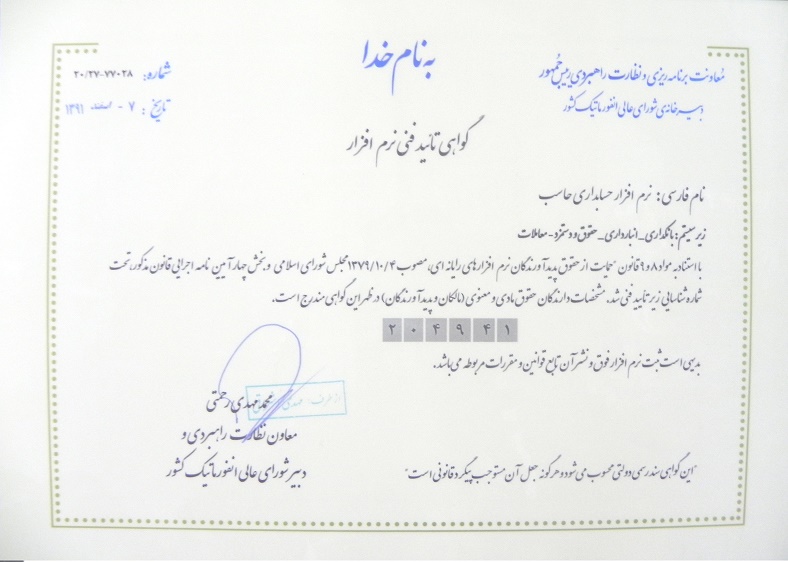 به نام خدا
معاونت برنامه ریزی و نظارت راهبردی رییس جمهور
دبیرخانه‌ی شورای عالی انفورماتیک کشور
شماره: ۲۰/۲۷-۷۷۰۲۸
تاریخ: ۷ - اسفند ۱۳۹۱
گواهی تائید فنی نرم افزار
نام فارسی: نرم افزار حسابداری حاسب
زیر سیستم: بانکداری_انبارداری_حقوق و دستمزد-معاملات
با استناد به مواد ۸ و ۹ قانون "حمایت از حقوق پدیدآورندگان نرم افزارهای رایانه ای، مصوب ۱۳۷۹/۱۰/۴ مجلس شورای اسلامی و بخش چهار آیین نامه اجرایی قانون مذکور، تحت
شماره شناسایی زیر تایید فنی شد. مشخصات دارندگان حقوق مادی و معنوی (مالکان و پدیدآورندگان) در ظهر این گواهی مندرج است.
۲۰۴۹۴۱
بدیهی است ثبت نرم افزار فوق و نشر آن تابع قوانین و مقررات مربوطه می باشد.
محمد مهدی رحمتی
معاون نظارت راهبردی و
دبیر شورای عالی انفورماتیک کشور
"این گواهی سند رسمی دولتی محسوب می شود و هرگونه جعل آن مستوجب پیگرد قانونی است"
از طرف مهدی